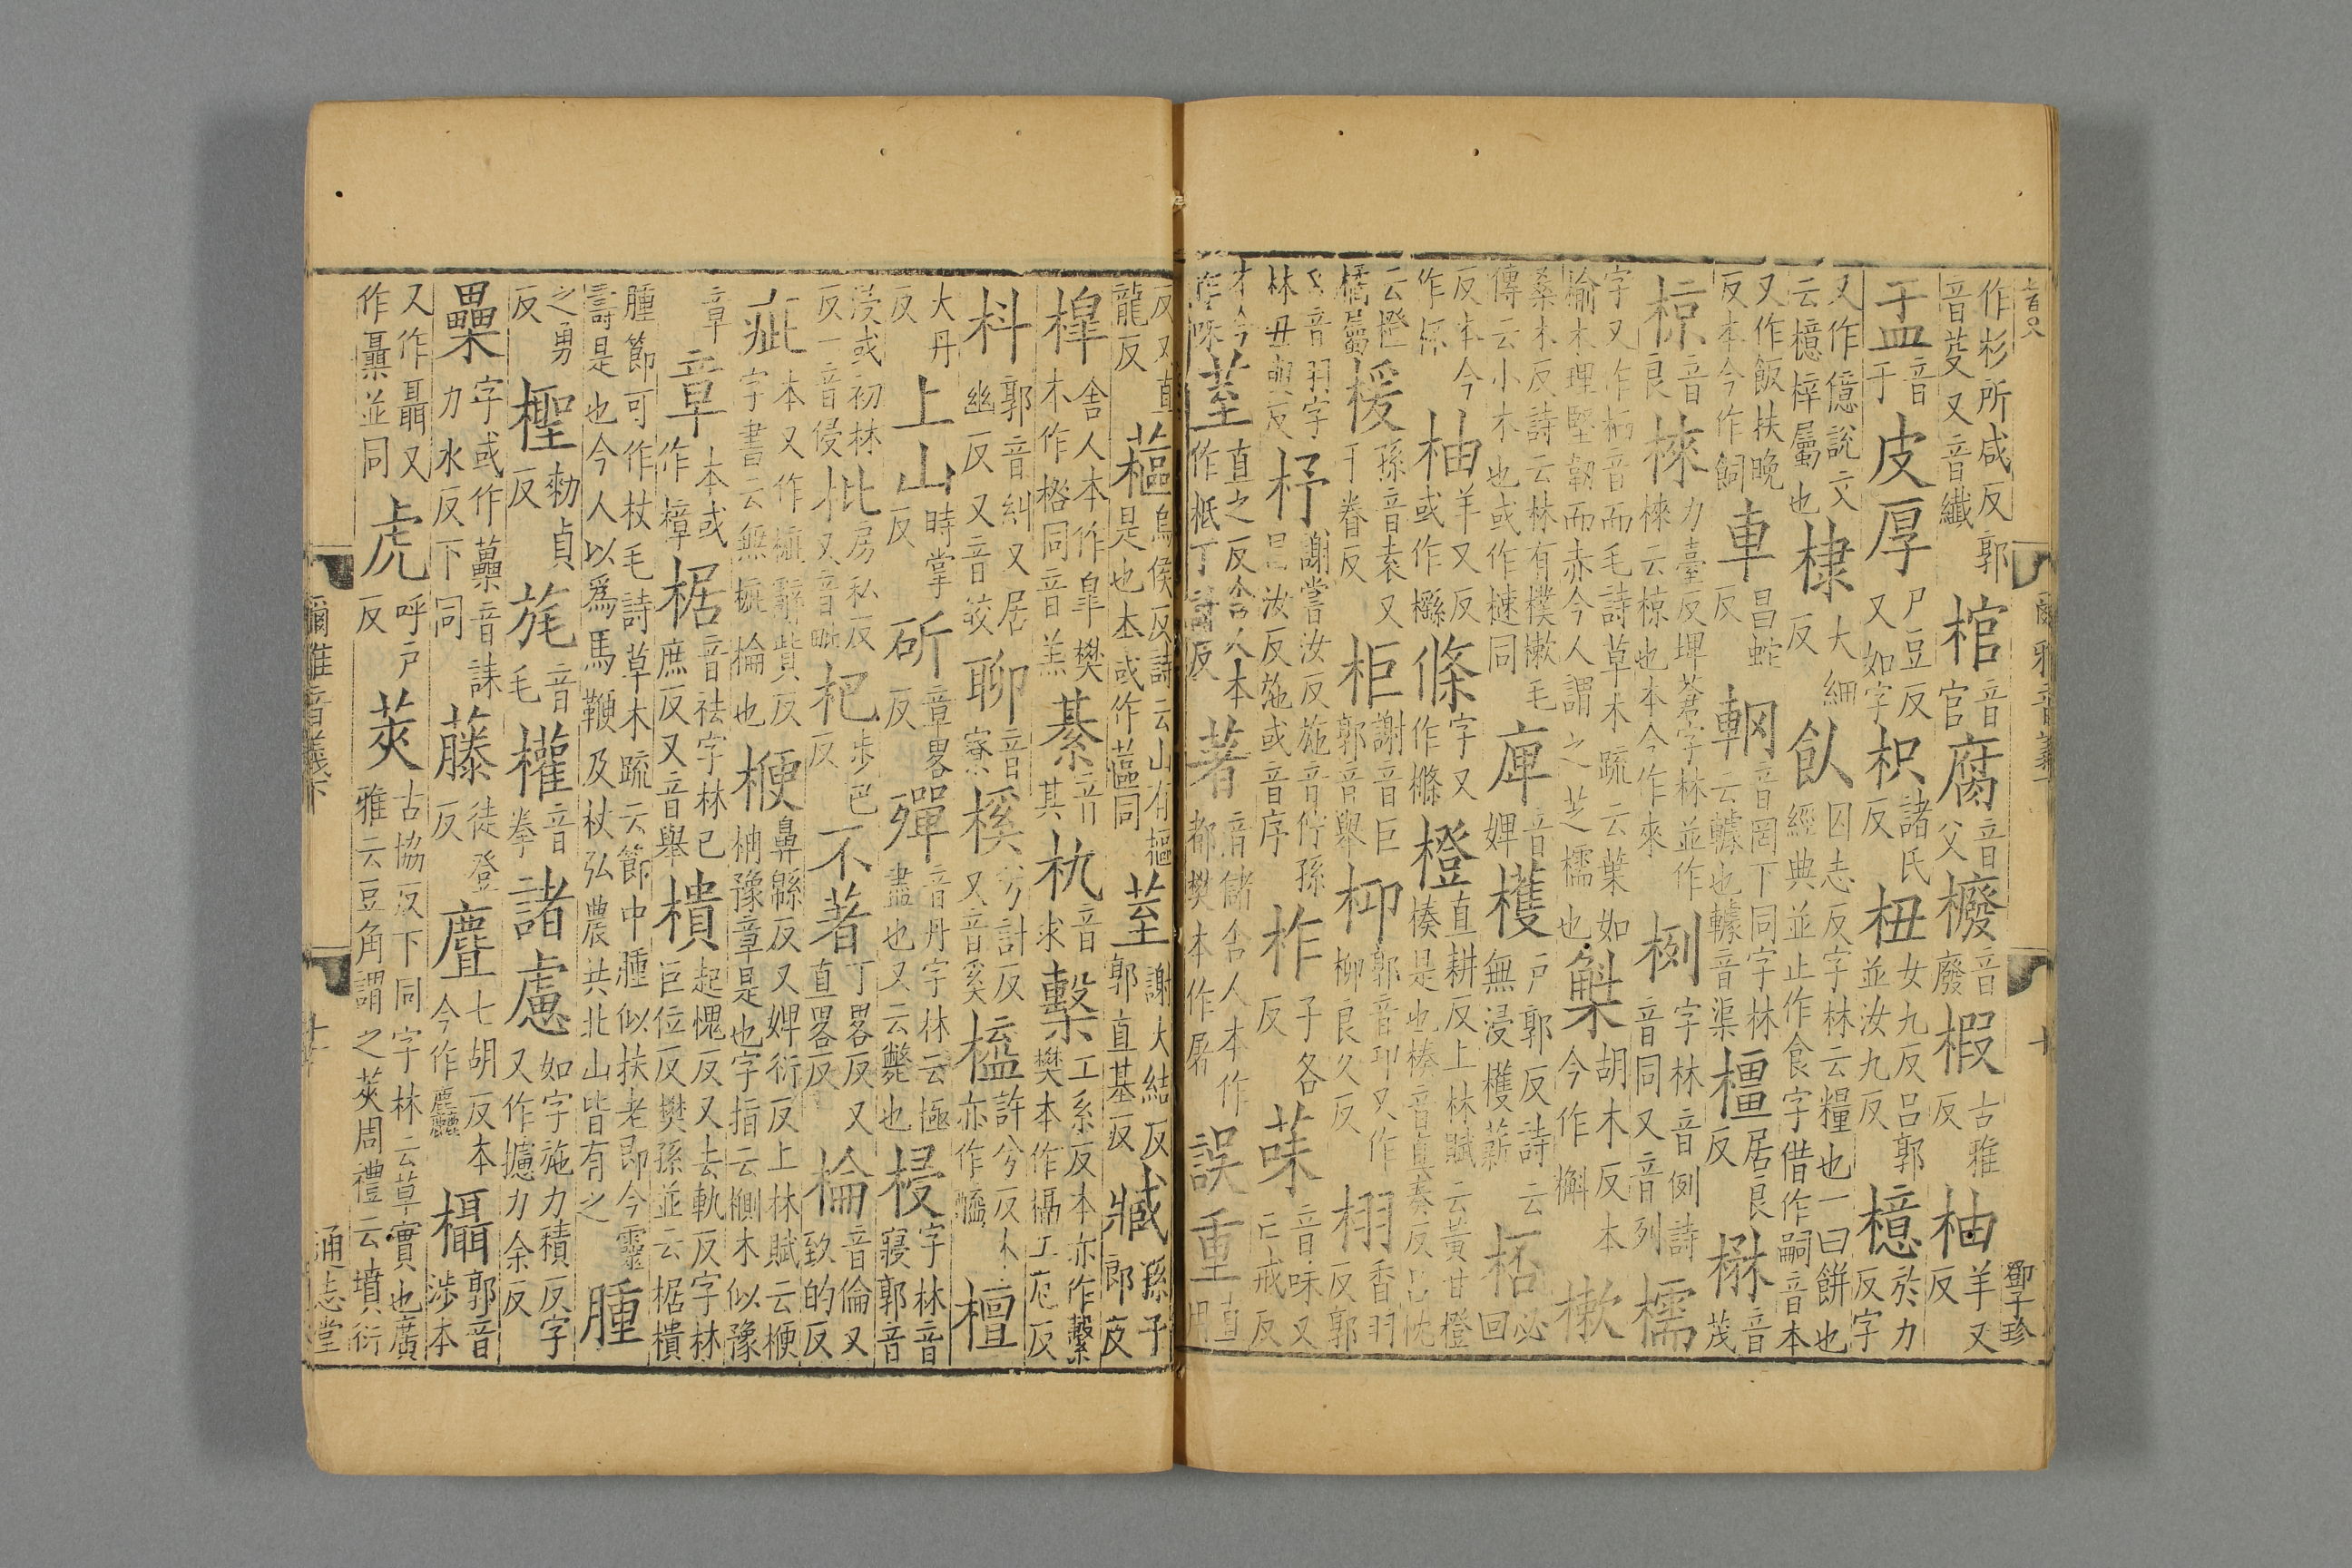 作杉所咸反郭音芟又音纖棺音官腐音父橃音廢椵古雅反柚羊又反
盂音于皮厚尸豆反又如字枳諸氏反杻女九反呂郭並汝九反檍於力反字
又作億說文云檍梓屬也棣大細反飤囚志反字林云糧也一曰餅也經典並止作食字借作嗣音本
又作飯扶晚反本今作飼車昌蛇反輞音罔下同字林云轅也轅音渠橿居良反楙音茂
椋音良棶力臺反埤蒼字林並作棶云椋也本今作來栵字林音例詩音同又音列檽
字又作栭音而毛詩草木疏云葉如榆木理堅韌而赤今人謂之芝檽也槲胡木反本今作槲樕
桑木反詩云林有樸樕毛傳云小木也或作樕同庳音婢檴戶郭反詩云無浸檴薪柸必回
反本今作柸柚羊又反或作櫾條字又作樤橙直耕反上林賦云黃甘橙楱是也楱音奏反呂忱
云橙橘屬楥孫音袁又于眷反柜謝音巨郭音舉枊郭音卬又作柳良久反栩香羽反郭
又音羽字林丑與反杼謝嘗汝反施音佇孫昌汝反施或音序柞子各反菋音味又亡戒反
荎直之反舍人本作柢丁計反著音儲舍人本作屠都樊本作屠誤重直用
反又直龍反蓲烏侯反詩云山有樞是也本或作蓲同荎謝大結反郭直基反臧孫子郎反
樺舍人本作皐樊木作楁同音羔綦音其朹音求檕工系反本亦作蘩樊本作槅工厄反
枓郭音糾又居幽反又音皎聊音寮槉兮計反又音奚橀許兮反本亦作㼁檀
大丹反上山時掌反斫章畧反殫音丹字林云極盡也又云斃也梫字林音寢郭音
浸或初林反一音侵枇房私反又音毗杷步巴反不著丁畧反又直畧反棆音倫又致的反
疵本又作㮊辭貲反字書云無㮊棆也楩鼻緜反又婢衍反上林賦云楩柟豫章是也字指云櫇木似豫
章章本或作樟椐音祛字林已庶反又音舉樻起愧反又去軌反字林巨位反樊孫並云椐樻
腫節可作杖毛詩草木疏云節中腫似扶老即今靈壽是也今人以爲馬鞭及杖弘農共北山皆有之腫
之勇反檉勑貞反旄音毛權音拳諸慮如字施力積反字又作攄力余反
櫐字或作虆音誄力水反下同藤徒登反麆七胡反本今作麤欇郭音涉本
又作聶又作𣠞並同虎呼戶反莢古協反下同字林云草實也廣雅云豆角謂之莢周禮云墳衍
爾雅音義下
十
鄧子珍
爾雅音義下
通志堂